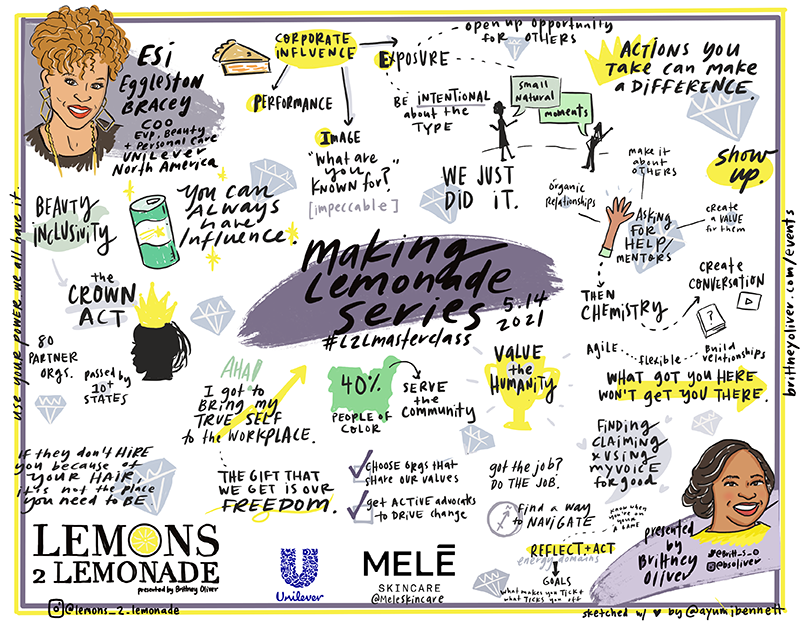 Esi
Eggleston
Bracey
COO
EVP, Beauty
+ Personal Care
Unilever
North America
CORPORATE
INFLUENCE
PERFORMANCE
IMAGE
"What are
you
KNOWN for?"
[impeccable]
EXPOSURE
open up opportunity
for OTHERS
BE INTENTIONAL
about the
TYPE
small
natural
moments
WE JUST
DID IT.
ACTIONS YOU
TAKE CAN MAKE
A DIFFERENCE.
show
up.
make it
about
OTHERS
organic
Relationships
ASKING
FOR
HELP/
MENTORS
create
a VALUE
for them
THEN
CHEMISTRY
CREATE
CONVERSATION
?
BEAUTY
INCLUSIVITY
YOU CAN
ALWAYS
have
Influence.
the
CROWN
ACT
80
PARTNER
ORGS.
passed by
10+
STATES
If they don't HIRE
you because of
YOUR HAIR,
it's not the place
you need to BE.
making
Lemonade
Series
5.14
2021
#L2Lmasterclass
AHA!
I got to
BRING my
TRUE SELF
to the WORKPLACE.
THE GIFT THAT
WE GET IS OUR
FREEDOM.
40%
PEOPLE OF
COLOR
SERVE
the
Community
CHOOSE ORGS that
SHARE OUR VALUES
get ACTIVE advocates
to DRIVE change
VALUE
the
HUMANITY
got the job?
DO THE JOB.
find a way
to NAVIGATE
know when
you're on
your
A GAME
REFLECT + ACT
energy domains
GOALS
what makes you TICK +
what TICKS you off
AGILE
flexible
Build
relationships
WHAT GOT YOU HERE
WON'T GET YOU THERE.
FINDING
CLAIMING
& USING
MY VOICE
for good
presented
by
Brittney
Oliver
@Britt_S_O
@bsoliver
use your power. we all have it.
brittneyoliver.com/events
LEMONS
2 LEMONADE
presented by Brittney Oliver
@lemons_2_lemonade
Unilever
MELĒ
SKINCARE
@Meleskincare
sketched w/ ♥ by @ayumibennett